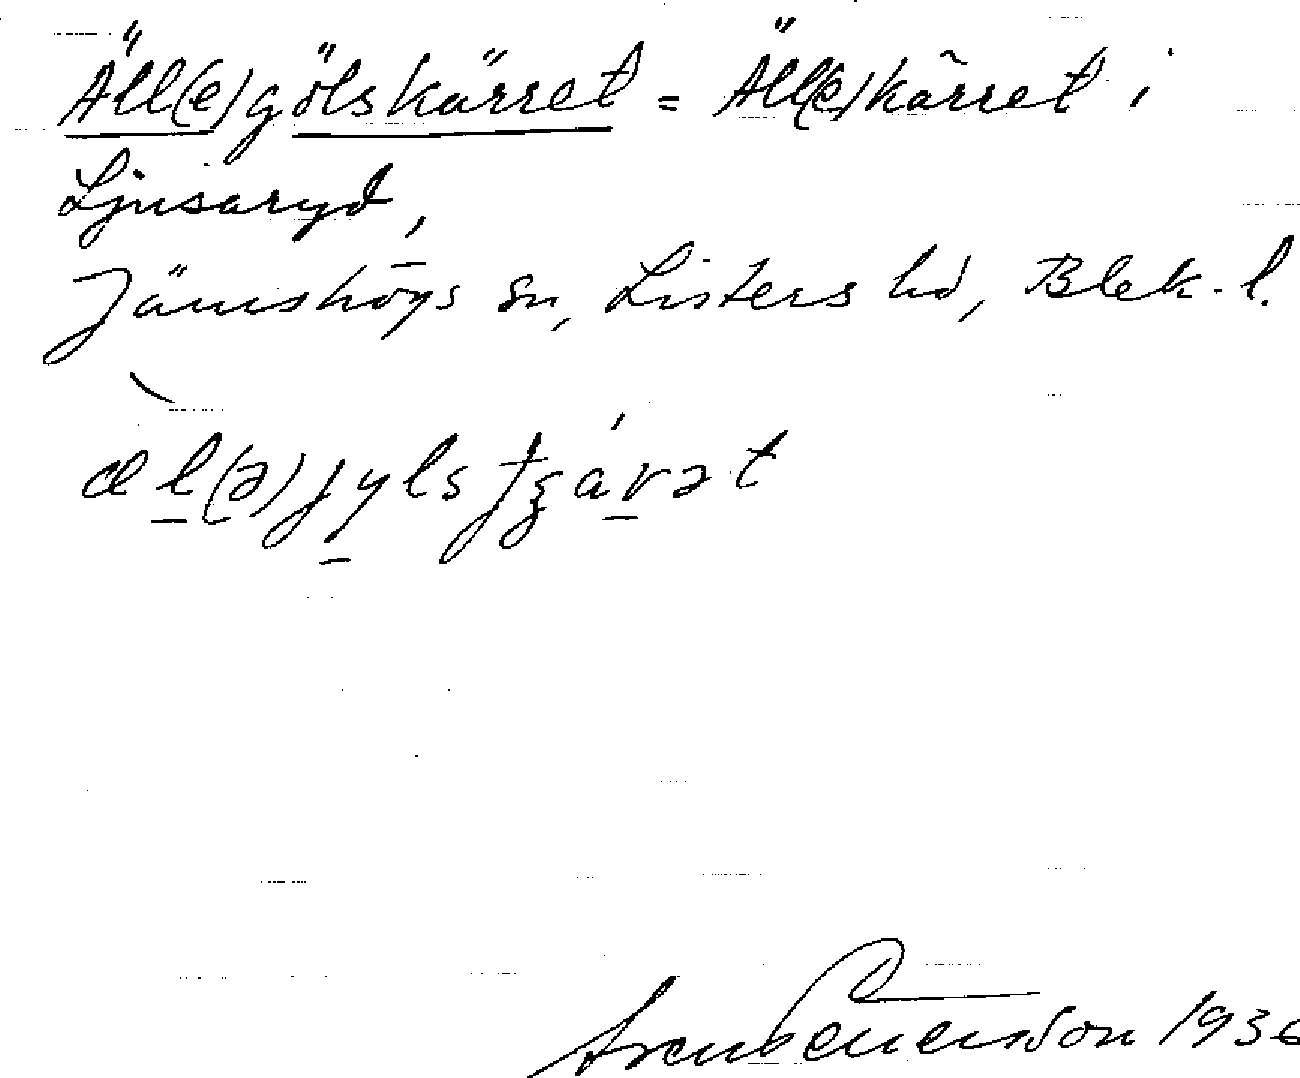 Äll(e)gölskärret = Äll(e)kärret i
Ljusaryd,
Jämshögs sn, Listers hd, Blek. l.
æl(ə)jylstʒárət
1936